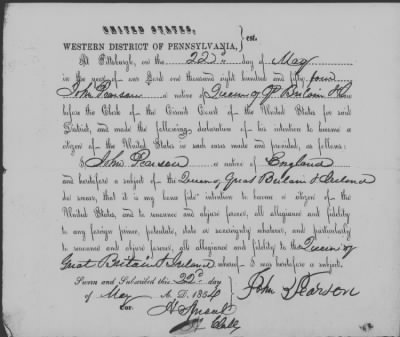 UNITED STATES,
WESTERN DISTRICT OF PENNSYLVANIA, } sct.
At Pittsburgh, on the 22d day of May
in the year of our Lord one thousand eight hundred and fifty four
John Pearson a native of Queen of Gt Britain & I
before the Clerk of the Circuit Court of the United States for said
District, and made the following declaration of his intention to become a
citizen of the United States in such cases made and provided, as follows:
I John Pearson a native of England
and heretofore a subject of the Queen of Great Britain & Ireland
do swear, that it is my bona fide intention to become a citizen of the
United States, and to renounce and abjure forever, all allegiance and fidelity
to any foreign prince, potentate, state or sovereignty whatever, and particularly
to renounce and abjure forever, all allegiance and fidelity to the Queen of
Great Britain & Ireland whereof I was heretofore a subject.
Sworn and Subscribed this 22d day
of May A. D. 1854
John Pearson
Cor. H Sproul
Clk